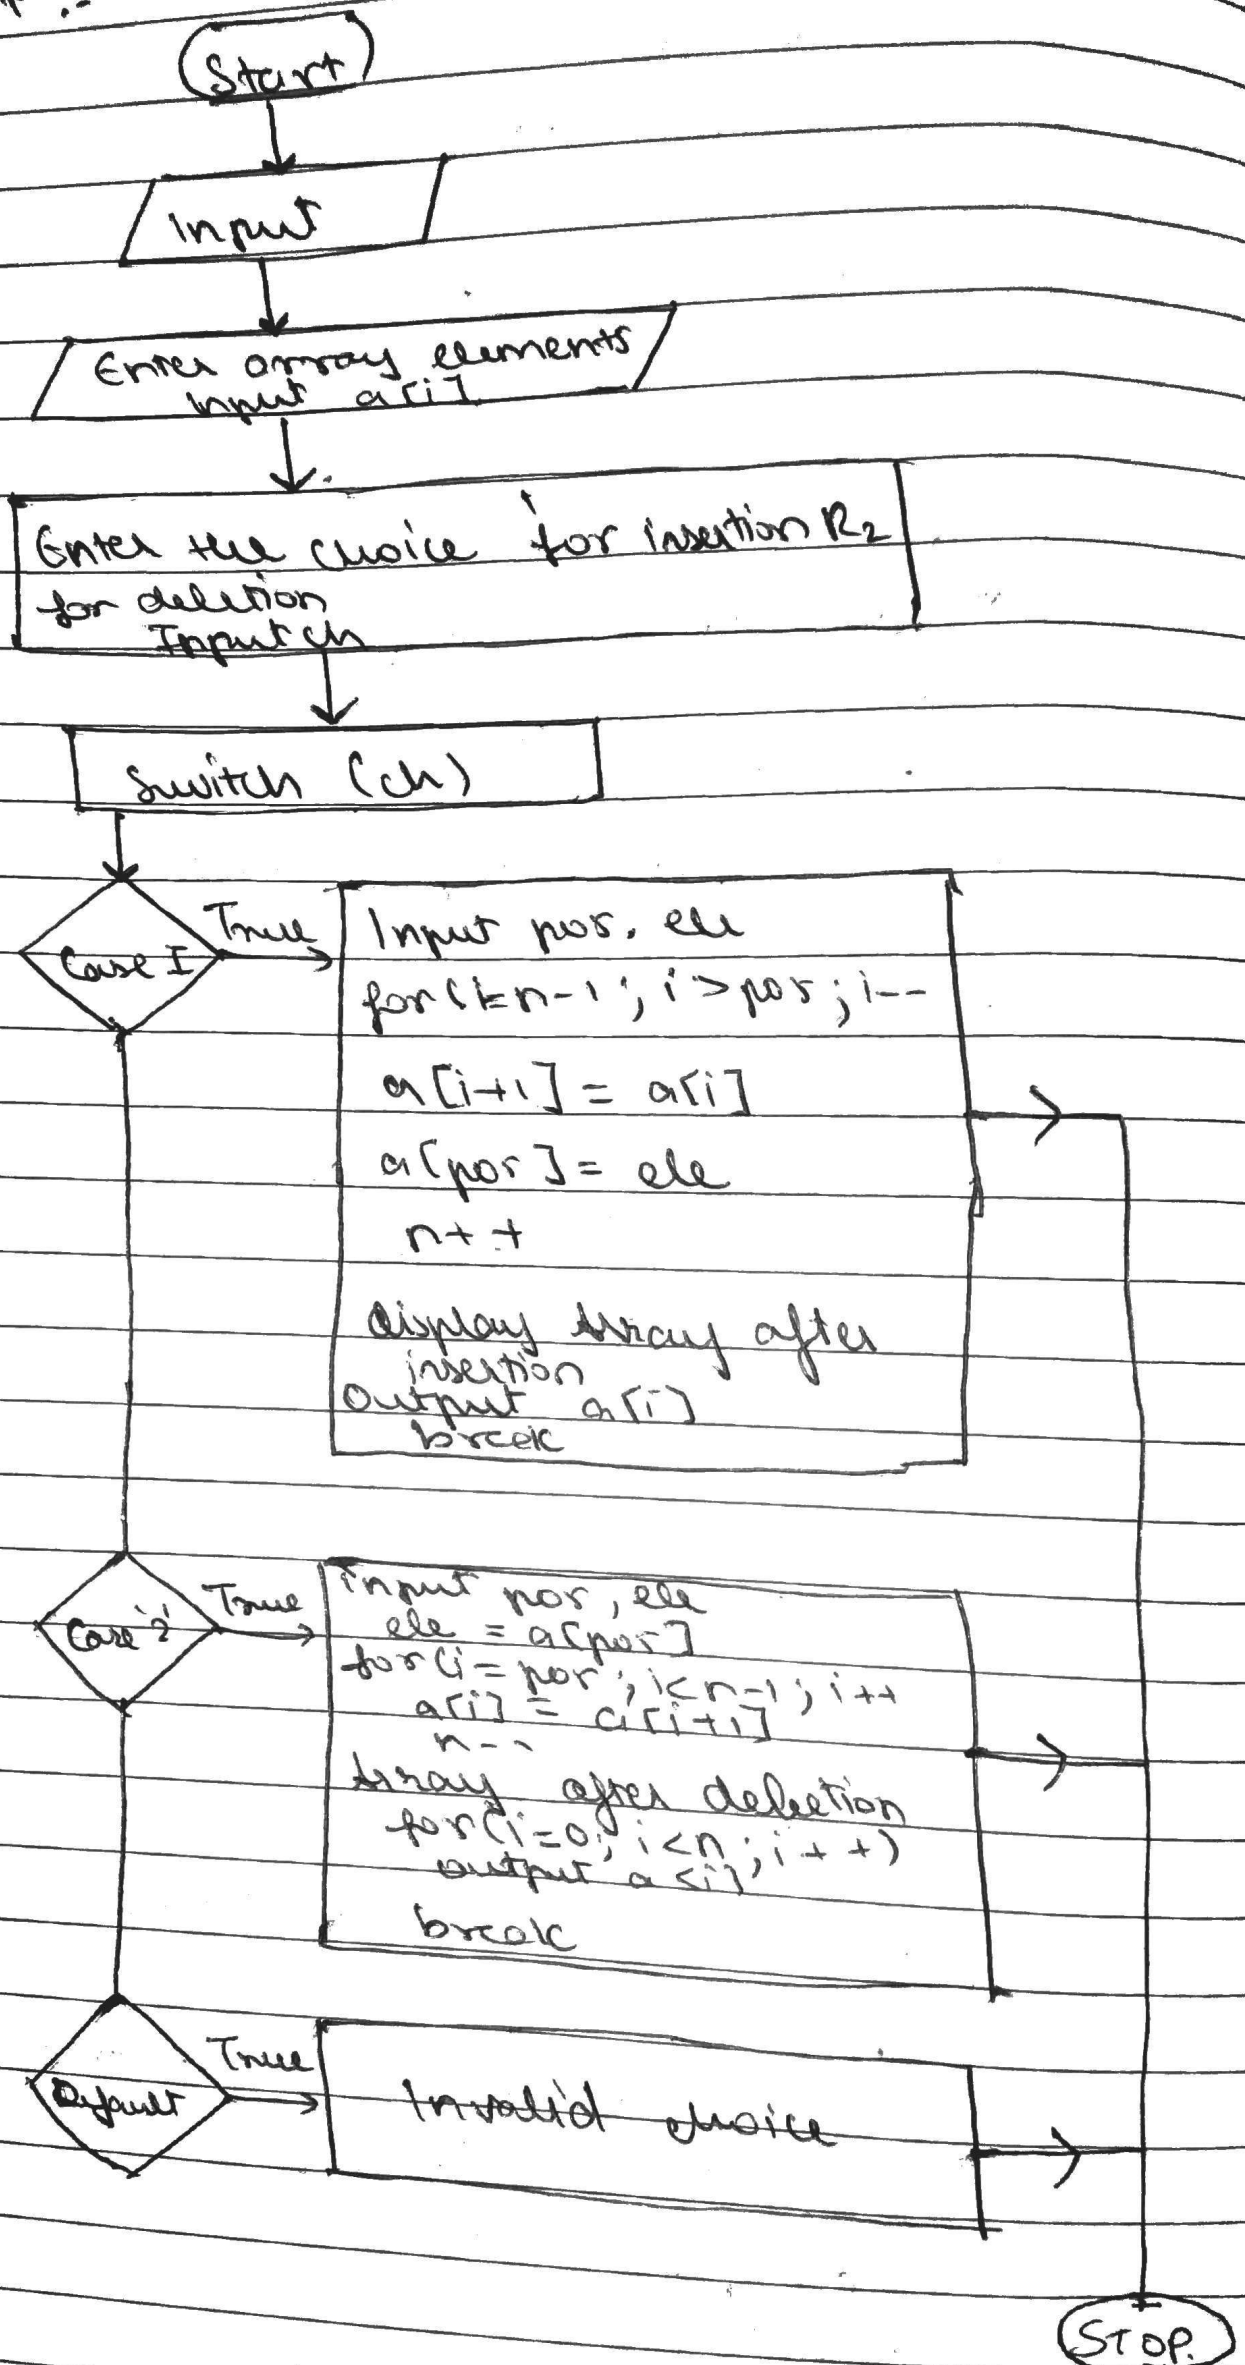 Start
Input
Enter array elements
Input a[i]
Enter the choice for insertion R2
for deletion
Input ch
Switch (ch)
Case I
True
Input pos, ele
for(i=n-1; i>pos; i--
a[i+1] = a[i]
a[pos] = ele
n++
display Array after
insertion
Output a[i]
break
Case '2'
True
Input pos, ele
ele = a[pos]
for(i=pos; i<n-1; i++
a[i] = a[i+1]
n--
Array after deletion
for(i=0; i<n; i++)
output a[i]
break
Default
True
Invalid choice
STOP.